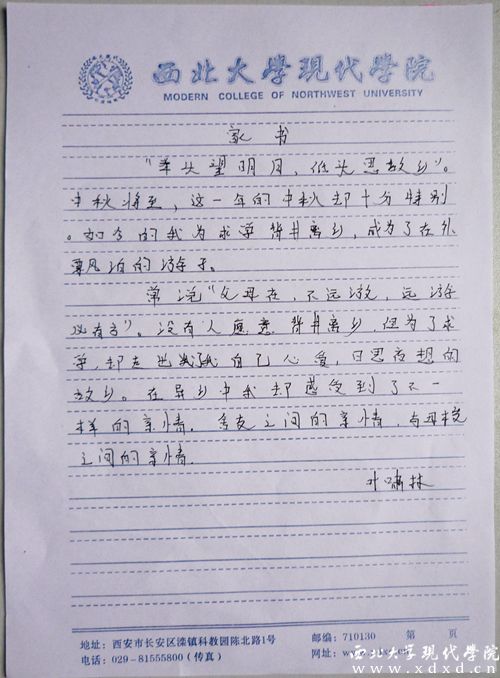 西北大學現代學院
MODERN COLLEGE OF NORTHWEST UNIVERSITY
家书
“举头望明月，低头思故乡”。
中秋将至，这一年的中秋却十分特别
。如今的我为求学背井离乡，成为了在外
飘泊的游子。
常说“父母在，不远游，远游
必有方”。没有人愿意背井离乡，但为了求
学，却走出我自己心爱，日思夜想的
故乡。在异乡中我却感受到了不一
样的亲情，舍友之间的亲情，与母校
之间的亲情.
叶啸林
地址：西安市长安区滦镇科教园陈北路1号 邮编：710130 第 页
电话：029-81555800（传真） 网址：
西北大学现代学院
www.xdxd.cn